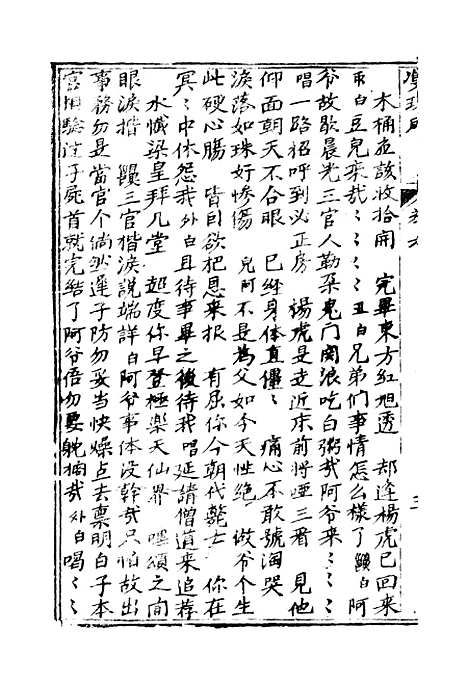 木桶並該收拾開　完畢東方紅旭透　却逢楊虎已回来
白豆兒来哉〻〻〻〻丑白兄弟們事情怎么樣了　白阿
爷故歇晨光三官人勒朶鬼門関浪吃白粥哉阿爷来〻〻〻
唱一路招呼到必正房　楊虎是走近床前将哑三看　見他
仰面朝天不合眼　已經身体直僵〻　痛心不敢號淘哭
淚落如珠好慘傷　兒阿不是為父如今天性絶　做爷个生
此硬心腸　皆因欲把恩来报　有屈你今朝代斃亡　你在
冥〻中休怨我外白且待事畢之後待我唱延請僧道来追荐
水懺梁皇拜几堂　超度你早登極楽天仙界　嘿頌之间
眼淚揩　三官揩淚説端詳白阿爷事体没幹哉只怕故出
事務勿是當官个倘然遲子防勿妥当快燥点去禀明白子本
官相驗过子屍首就完結了阿爷唔勿要躭擱哉外白喝〻〻